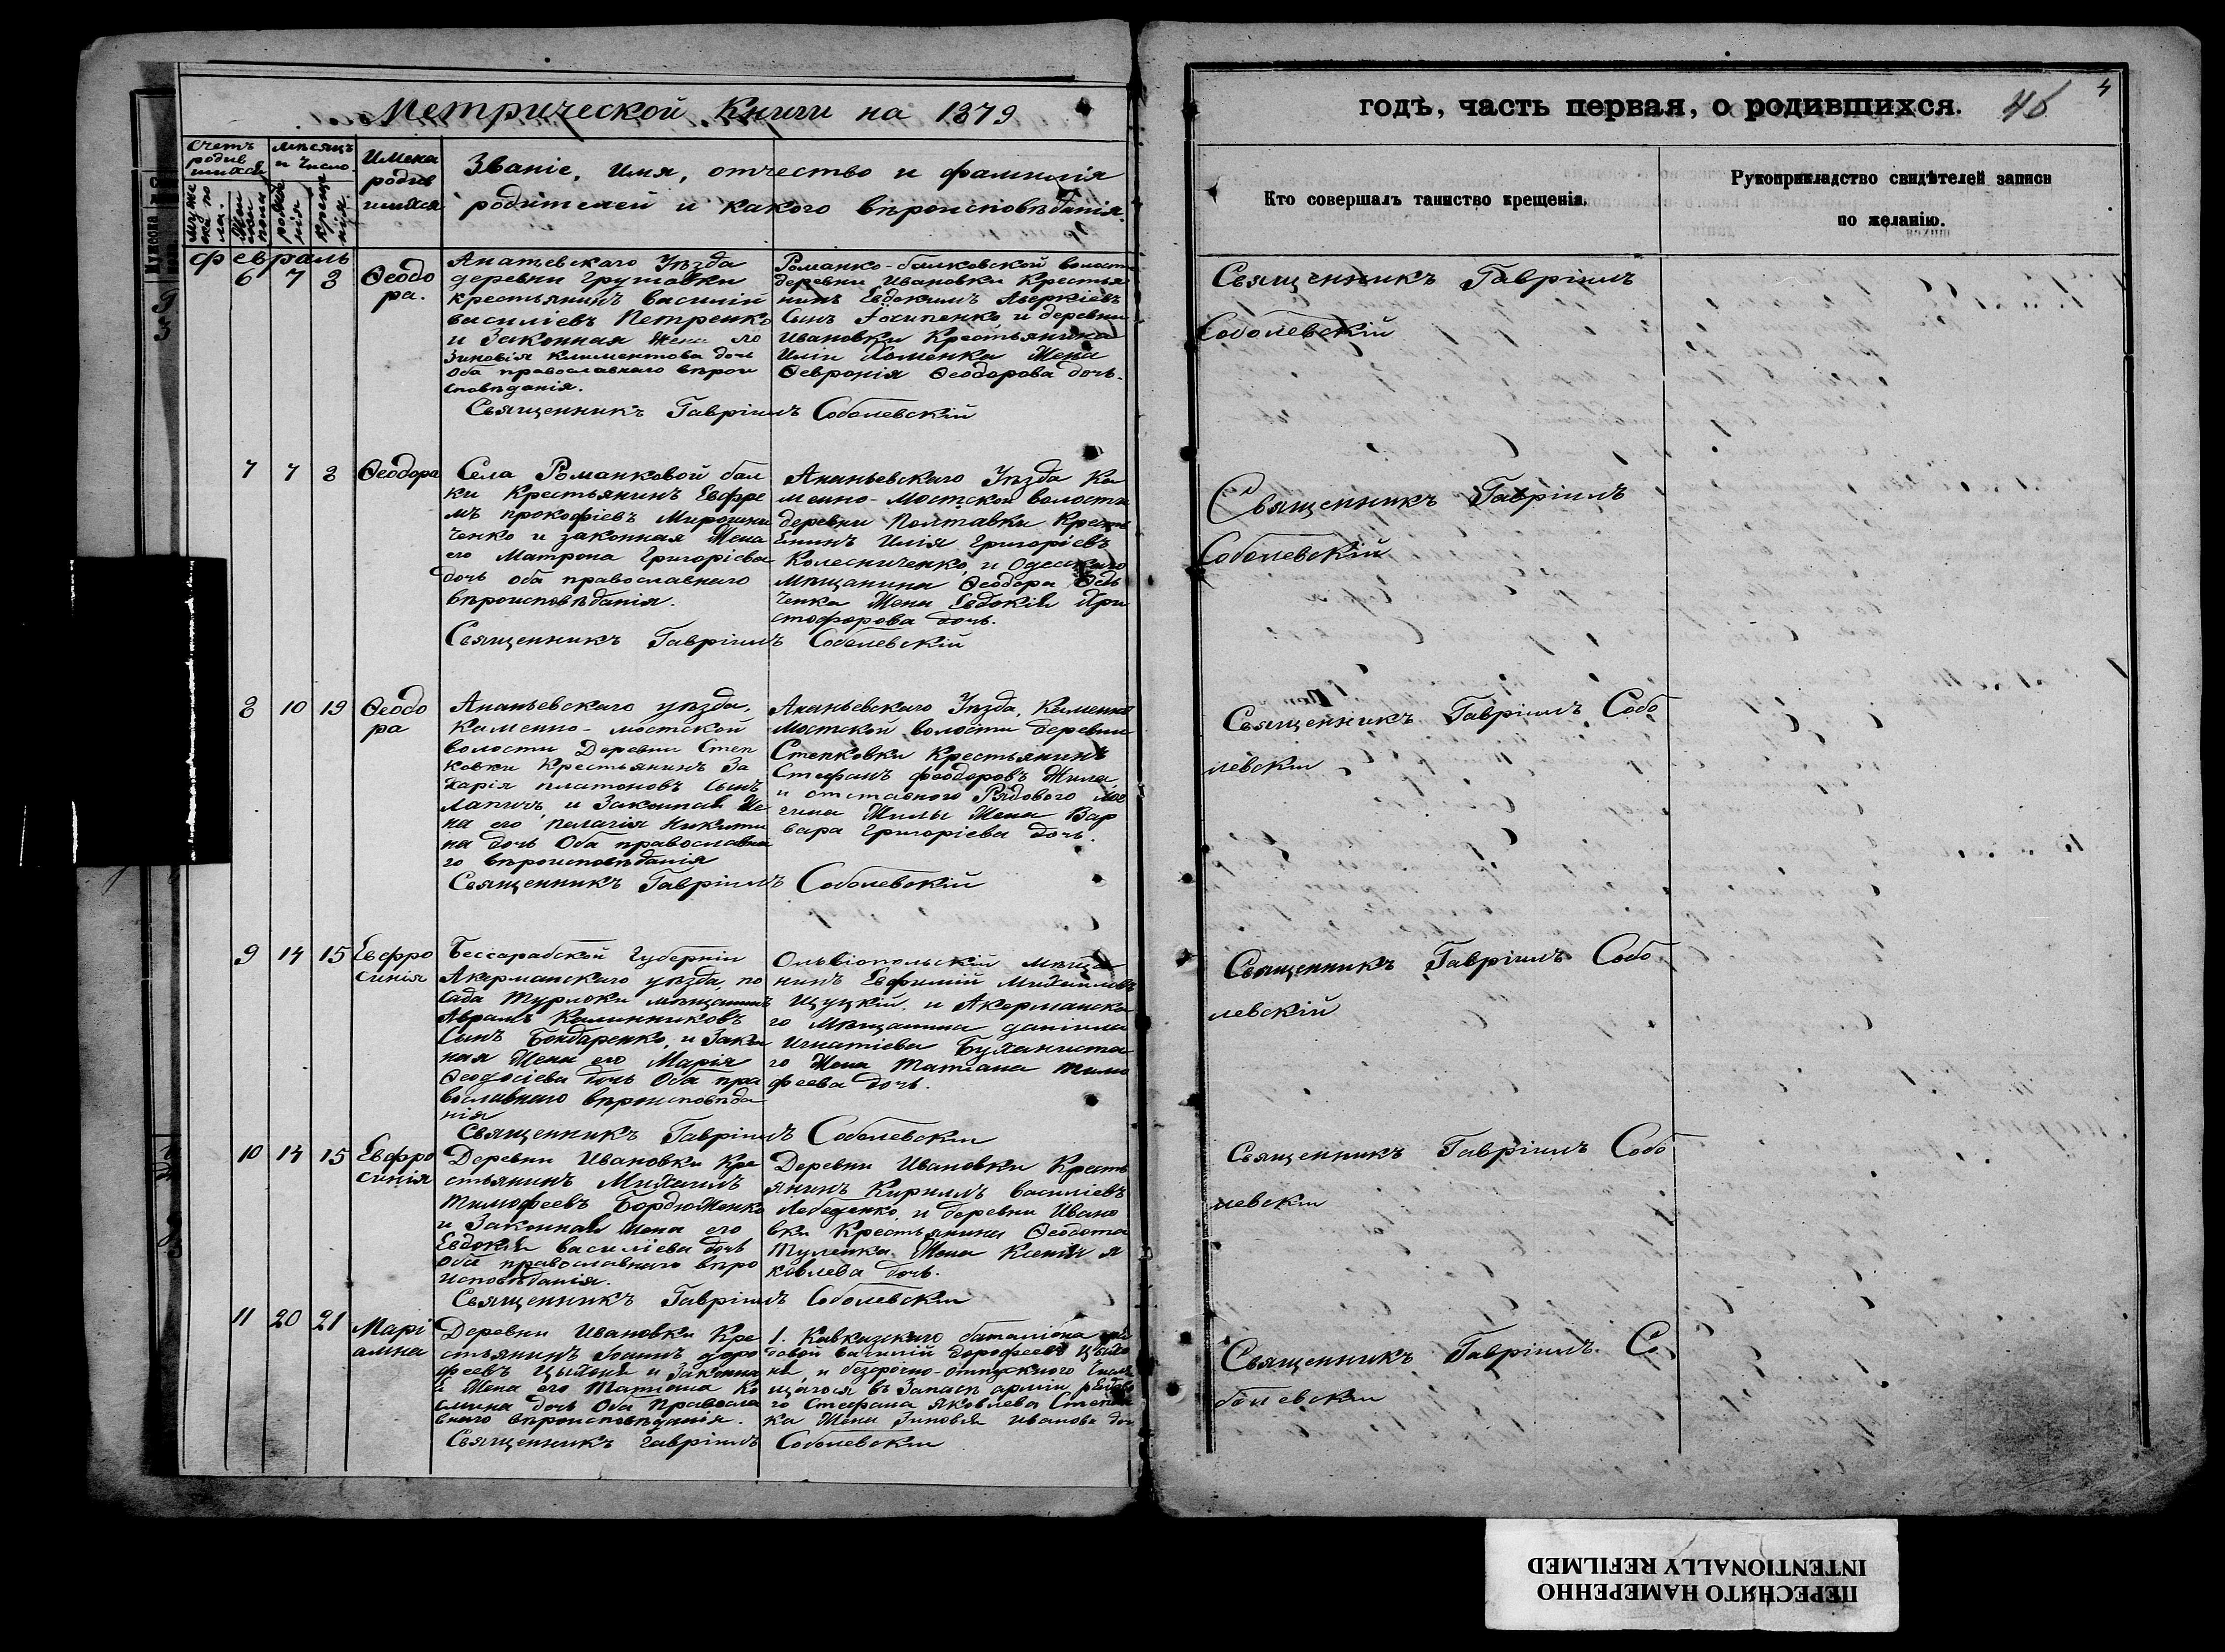 Метрической Книги на 1879
годъ, часть первая, о родившихся.
46
4
Счетъ родив шихся
Мѣсяцъ и Число
Имена родив шихся
Званіе, Имя, отчество и фамилія
родителей и какого вѣроисповѣданія.
Кто совершалъ таинство крещенія.
Рукоприкладство свидѣтелей записи
по желанію.
февраль
6 7 8 Ѳеодо
ра.
Ананьевскаго Уѣзда
деревни Грушовки
крестьянинъ Василій
василіевъ Петренко
и Законная Жена его
Зиновія Климентова дочь
Оба православнаго вѣрои
сповѣданія.
Романко-балковской волости
деревни Ивановки Крестья
нинъ Евдокимъ Аверкіевъ
Сынъ Іосипенко и деревни
Ивановки Крестьянина
Иліи Хоменка Жена
Ѳевронія Ѳеодорова дочь.
Священникъ Гавріилъ Соболевскій
Священникъ Гавріилъ
Соболевскій
7 7 8 Ѳеодора
Села Романковой бал
ки Крестьянинъ Евфре
мъ прокофіевъ Мирошни
ченко и законная Жена
его Матрона Григоріева
дочь оба православнаго
вѣроисповѣданія.
Ананьевскаго Уѣзда Ка
менно-Мостской волости
деревни Полтавки Кресть
енинъ Илія Григоріевъ
Колесниченко, и Одесскаго
Мѣщанина Ѳеодора Ѳедь
ченка Жена Евдокія Хри
стофорова дочь.
Священникъ Гавріилъ Соболевскій
Священникъ Гавріилъ
Соболевскій
8 10 19 Ѳеодо
ра
Ананьевскаго уѣзда,
Каменно-мостской
волости Деревни Степ
ковки Крестьянинъ За
харія платоновъ Сынъ
Лапичъ и Законная Же
на его пелагія Никити
на дочь Оба православна
го вѣроисповѣданія
Ананьевскаго Уѣзда, Каменно
мостской волости деревни
Степковки Крестьянинъ
Стефанъ феодоровъ Жила
и отставного Рядового
Жилы Жена Вар
вара Григоріева дочь.
Священникъ Гавріилъ Соболевскій
Священникъ Гавріилъ Собо
левскій
9 14 15 Евфро
синія
Бессарабской Губерніи
Акерманскаго уѣзда, по
сада Турлоки мѣщанинъ
Аврамъ Калинниковъ
Сынъ Бондаренко, и Закон
ная Жена его Марія
Ѳеодосіева дочь Оба пра
вославнаго вѣроисповѣда
нія
Ольвіопольскій мѣща
нинъ Евфимій Михаиловъ
Щуцкій, и Акерманска
го Мѣщанина даніила
Игнатіева Буханиста
го Жена Татіана тимо
феева дочь.
Священникъ Гавріилъ Соболевскій
Священникъ Гавріилъ Собо
левскій
10 14 15 Евфро
синія
Деревни Ивановки Кре
стьянинъ Михаилъ
тимофеевъ Бордюженко
и Законная Жена его
Евдокія Василіева дочь
оба православнаго вѣро
исповѣданія.
Деревни Ивановки Кресть
янинъ Кириллъ Василіевъ
Лебеденко, и деревни Ивано
вки Крестьянина Ѳеодота
Туленка Жена Ксенія я
ковлева дочь.
Священникъ Гавріилъ Соболевскій
Священникъ Гавріилъ Собо
левскій
11 20 21 Марі
амна
Деревни Ивановки Кре
стьянинъ Іоаннъ доро
феевъ Цыхоня и Законна
я Жена его Татіана Ко
смина дочь Оба Правосла
внаго вѣроисповѣданія.
1. Кавказскаго баталіона ря
довой Василій дорофеевъ Цыхо
ня, и безсрочно-отпускного числя
щагося въ Запасѣ арміи рядово
го Стефана Яковлева Степан
ка Жена Зиновія Иванова доч
Священникъ Гавріилъ Соболевскій
Священникъ Гавріилъ Со
болевскій
ПЕРЕСНЯТО НАМЕРЕННО
INTENTIONALLY REFILMED